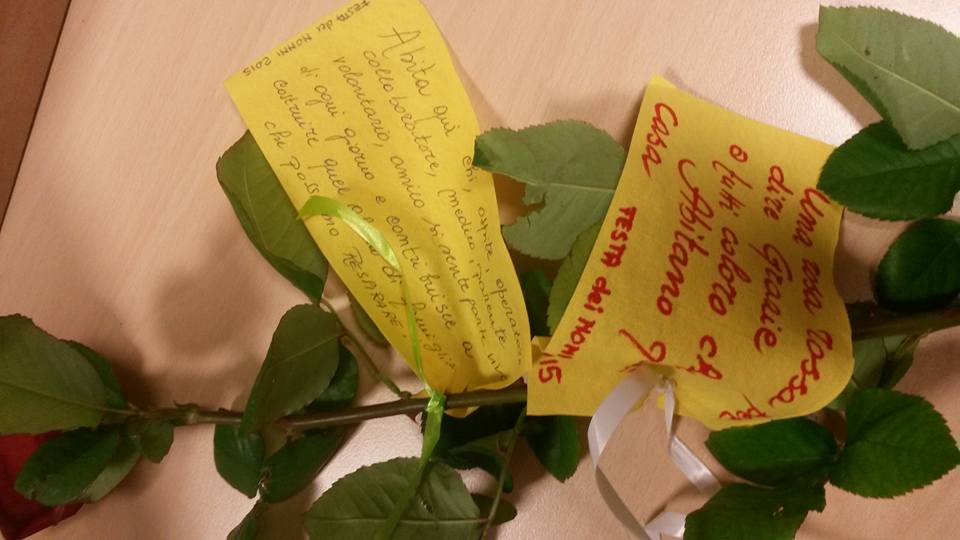 FESTA dei NONNI 2015
Abita qui chi, ospite, operatore,
collaboratore, medico, parente
volontario, amico si sente parte viva
di ogni giorno e contribuisce a
costruire quel
che possano RESPIRARE
Una rosa rossa per
dire Grazie
a tutti coloro CHE
Abitano
Casa
FESTA dei NONNI 15